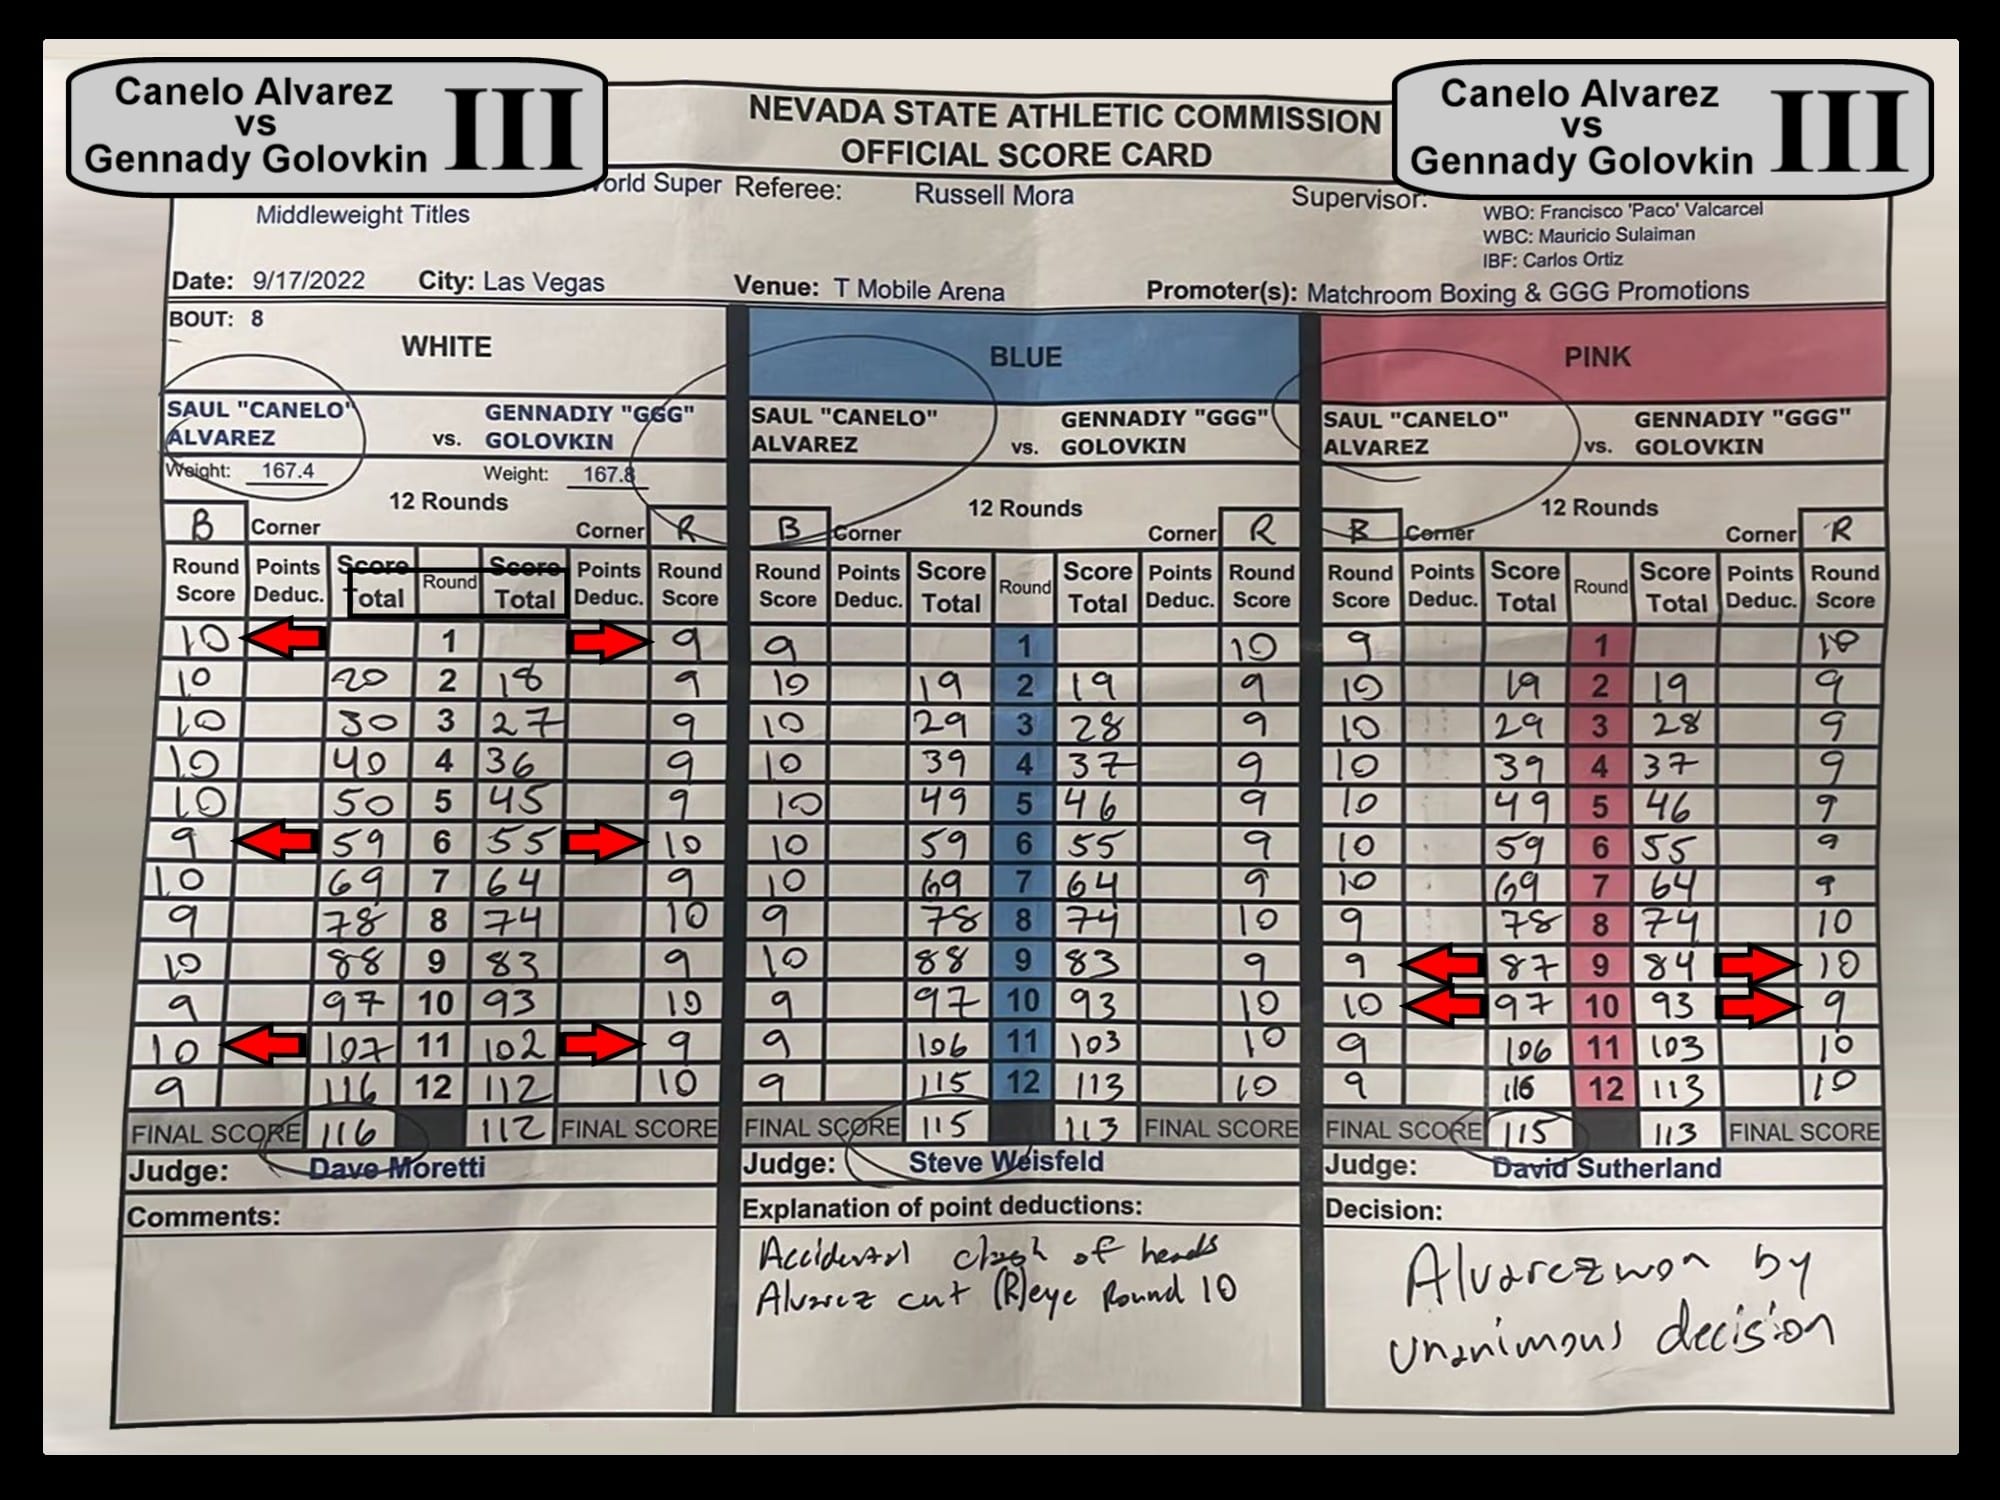 Canelo Alvarez
vs
Gennady Golovkin
III
Canelo Alvarez
vs
Gennady Golovkin
III
NEVADA STATE ATHLETIC COMMISSION
OFFICIAL SCORE CARD
World Super
Middleweight Titles
Referee: Russell Mora
Supervisor:
WBO: Francisco 'Paco' Valcarcel
WBC: Mauricio Sulaiman
IBF: Carlos Ortiz
Date: 9/17/2022 City: Las Vegas Venue: T Mobile Arena Promoter(s): Matchroom Boxing & GGG Promotions
BOUT: 8
WHITE
SAUL "CANELO" GENNADIY "GGG"
ALVAREZ vs. GOLOVKIN
Weight: 167.4 Weight: 167.8
12 Rounds
B Corner Corner R
Round Points Score Round Score Points Round
Score Deduc. Total Total Deduc. Score
10 1 9
10 20 2 18 9
10 30 3 27 9
10 40 4 36 9
10 50 5 45 9
9 59 6 55 10
10 69 7 64 9
9 78 8 74 10
10 88 9 83 9
9 97 10 93 10
10 107 11 102 9
9 116 12 112 10
FINAL SCORE 116 112 FINAL SCORE
Judge: Dave Moretti
Comments:
BLUE
SAUL "CANELO" GENNADIY "GGG"
ALVAREZ vs. GOLOVKIN
12 Rounds
B Corner Corner R
Round Points Score Round Score Points Round
Score Deduc. Total Total Deduc. Score
9 1 10
10 19 2 19 9
10 29 3 28 9
10 39 4 37 9
10 49 5 46 9
10 59 6 55 9
10 69 7 64 9
9 78 8 74 10
10 88 9 83 9
9 97 10 93 10
9 106 11 103 10
9 115 12 113 10
FINAL SCORE 115 113 FINAL SCORE
Judge: Steve Weisfeld
Explanation of point deductions:
Accidental clash of heads
Alvarez cut (R)eye Round 10
PINK
SAUL "CANELO" GENNADIY "GGG"
ALVAREZ vs. GOLOVKIN
12 Rounds
B Corner Corner R
Round Points Score Round Score Points Round
Score Deduc. Total Total Deduc. Score
9 1 10
10 19 2 19 9
10 29 3 28 9
10 39 4 37 9
10 49 5 46 9
10 59 6 55 9
10 69 7 64 9
9 78 8 74 10
9 87 9 84 10
10 97 10 93 9
9 106 11 103 10
9 116 12 113 10
FINAL SCORE 115 113 FINAL SCORE
Judge: David Sutherland
Decision:
Alvarez won by
unanimous decision